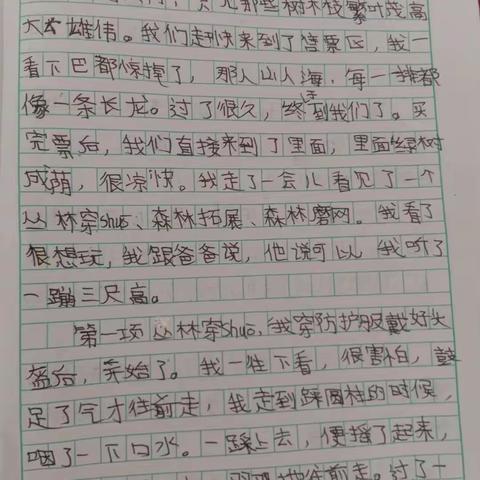 只见那些树木枝繁叶茂高
大雄伟。我们走快来到了售票区，我一
看下巴都惊掉了，那人山人海，每一排都
像一条长龙。过了很久，终于到我们了。买
完票后，我们直接来到了里面，里面绿树
成荫，很凉快。我走了一会儿看见了一个
丛林穿shuō、森林拓展、森林磨网。我看了
很想玩，我跟爸爸说，他说可以，我听了
一蹦三尺高。
第一项丛林穿shuō，我穿防护服戴好头
盔后，开始了。我一往下看，很害怕，鼓
足了气才往前走，我走到踩圆柱的时候，
咽了一下口水。一踩上去，便摇了起来，
地往前走。过了一